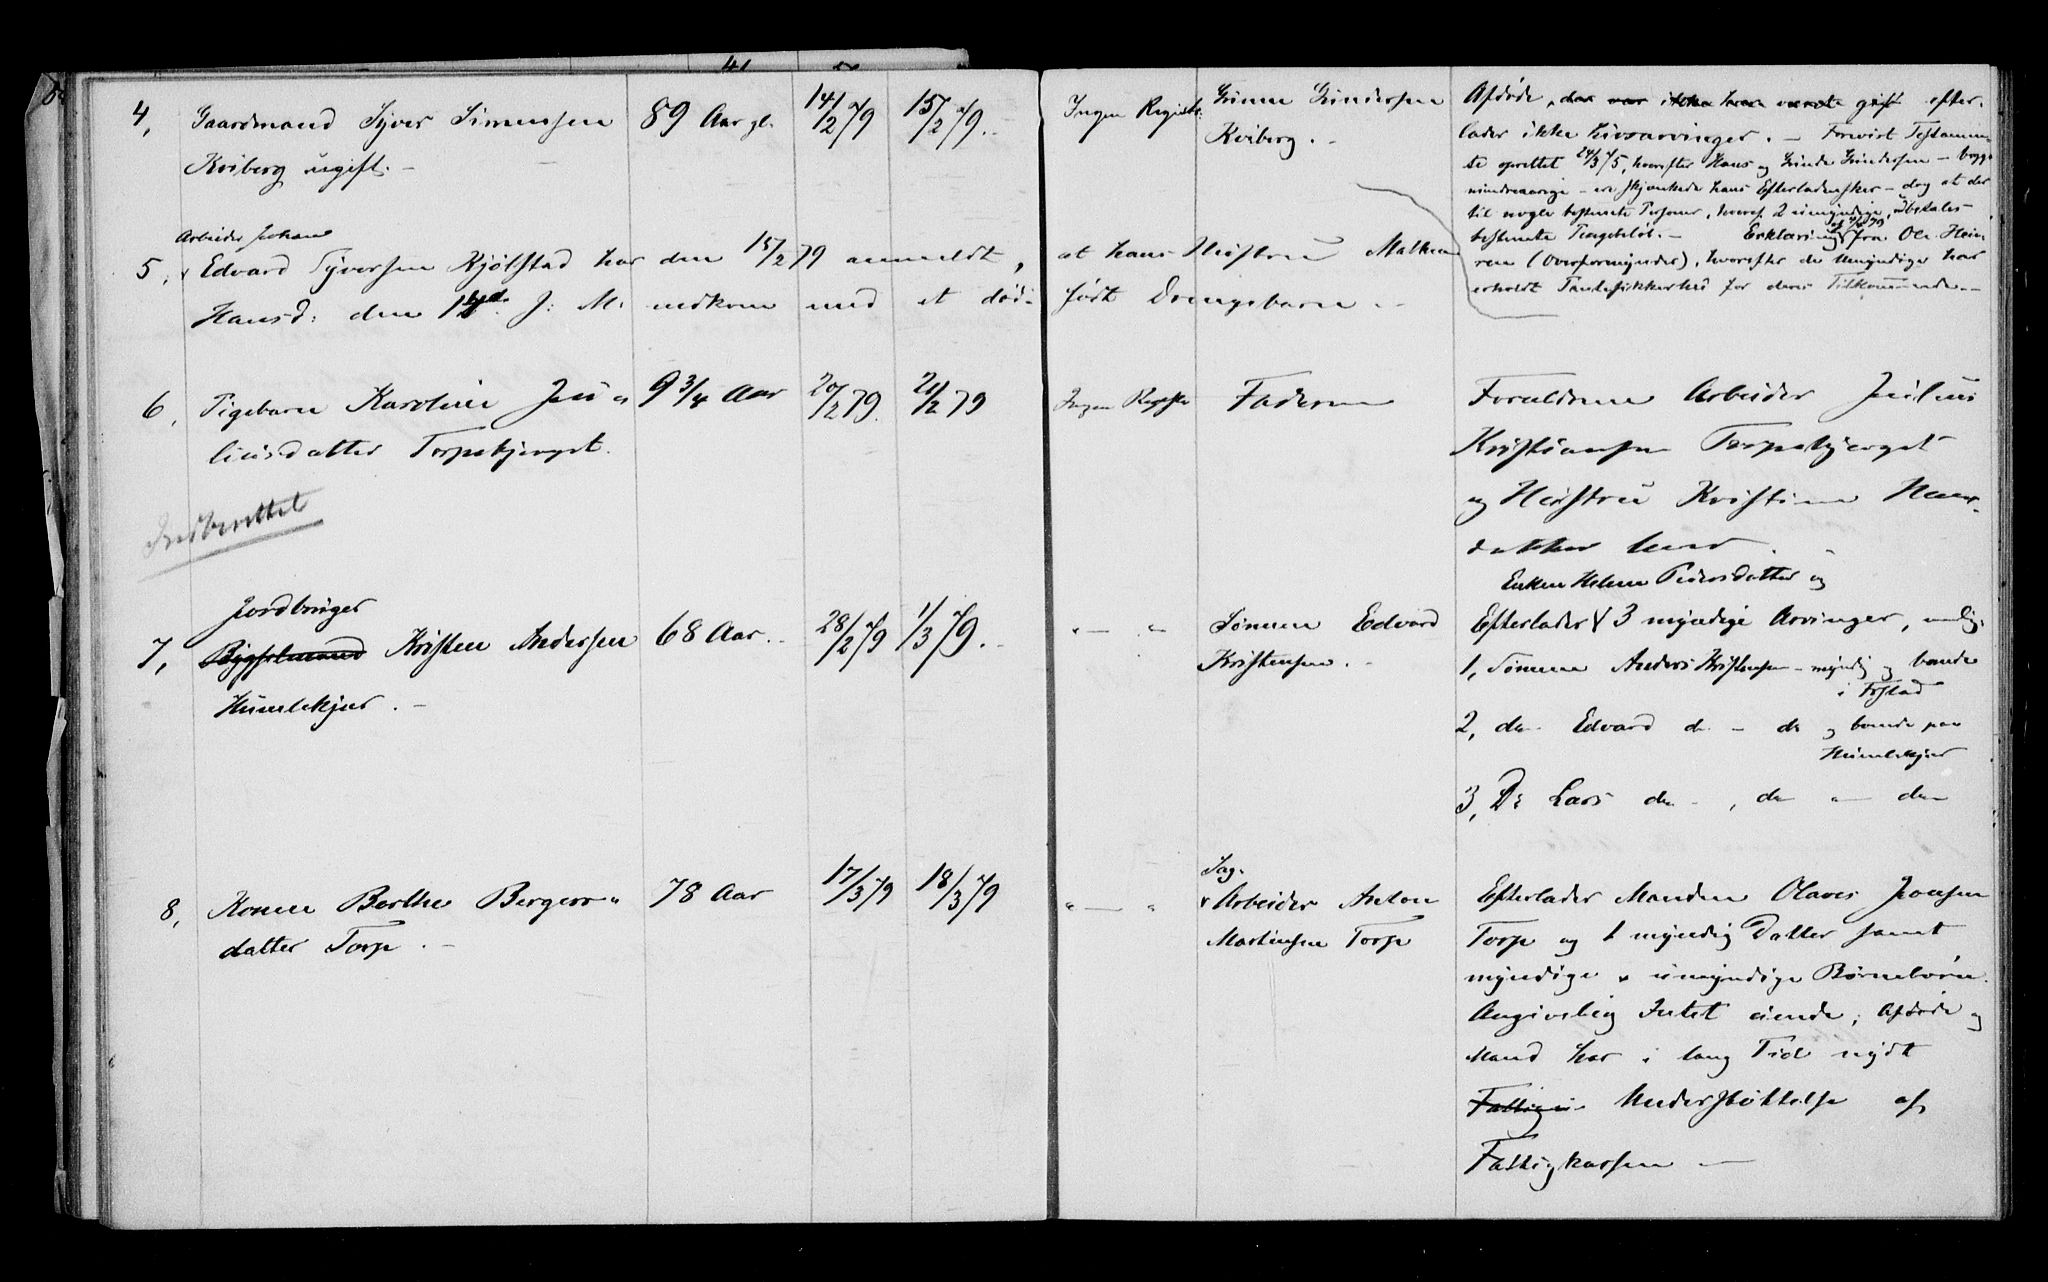 4, Gaardmand Syver Simensen 89 Aar gl. 14/2 79 15/2 79. Ingen Registr.
Kviberg ugift. -
Gunne Gundersen
Kviberg. -
Afdøde, der var ikke har været gift efter-
lader ikke Livsarvinger. - Forevist Testamen-
te oprettet 24/3 75, hvorefter Hans og Gunde Gundersen - begge
mindreaarige - ere skjænkede hans Efterladensker - dog at der
til nogle bestemte Personer, hvoraf 2 umyndige, udbetales
bestemte Pengebeløb. - Erklæring fra Ole
(Overformynder), hvorefter de Umyndige har
erholdt for deres Tilkommende. -
Arbeider Johan
5, Edvard Syversen Kjølstad har den 15/2 79 anmeldt, at hans Hustru Mathea
Hansd: den 14d. J: M: nedkom med et død- født Drengebarn. -
6, Pigebarn Karoline Ju- 9 3/4 Aar 20/2 79. 21/2 79 Ingen Registr Faderen
liusdatter Torpsbjerget.
Forældrene Arbeider Julius
Kristiansen Torpsbjerget
og Hustru Kristine Hans-
datter lever.
Indberettet
Jordbruger
7, Bygselmand Kristen Andersen 68 Aar. 28/2 79 1/3 79. " — "
Humlekjær. -
Sønnen Edvard
Kristensen. -
Enken Helene Pedersdatter og
Efterlader 3 myndige Arvinger, nemlig:
1, Sønnen Anders Kristensen - myndig og boende
i
2, do. Edvard do. - do og boende paa
Humlekjær
3, Do Lars do - , do — do
8, Konen Berthe Bergers- 78 Aar 17/3 79 18/3 79 " — "
datter Torp. -
Sag.
Arbeider Anton
Martinsen Torp
Efterlader Manden Olaves Jonsen
Torp og 1 myndig Datter samt
myndige & umyndige Børnebørn.
Angivelig Intet eiende, Afdøde og
Mand har i lang Tid nydt
Understøttelse af
Fattigkassen —